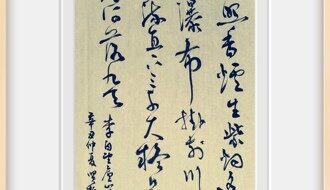 照香炉生紫烟
瀑布挂前川
流直下三千尺疑
河落九天
李白望庐山
辛丑仲夏